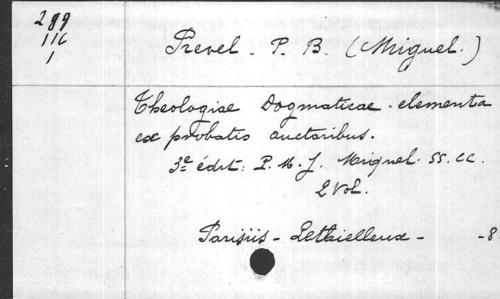 299
116
1
Prevel - P. B. (Miquel.)
Theologiae Dogmaticae elementa
ex probatis auctoribus.
3e édit: P. M. J. Miquel. SS. CC.
2 Vol.
Parisiis - Lethielleux - -8